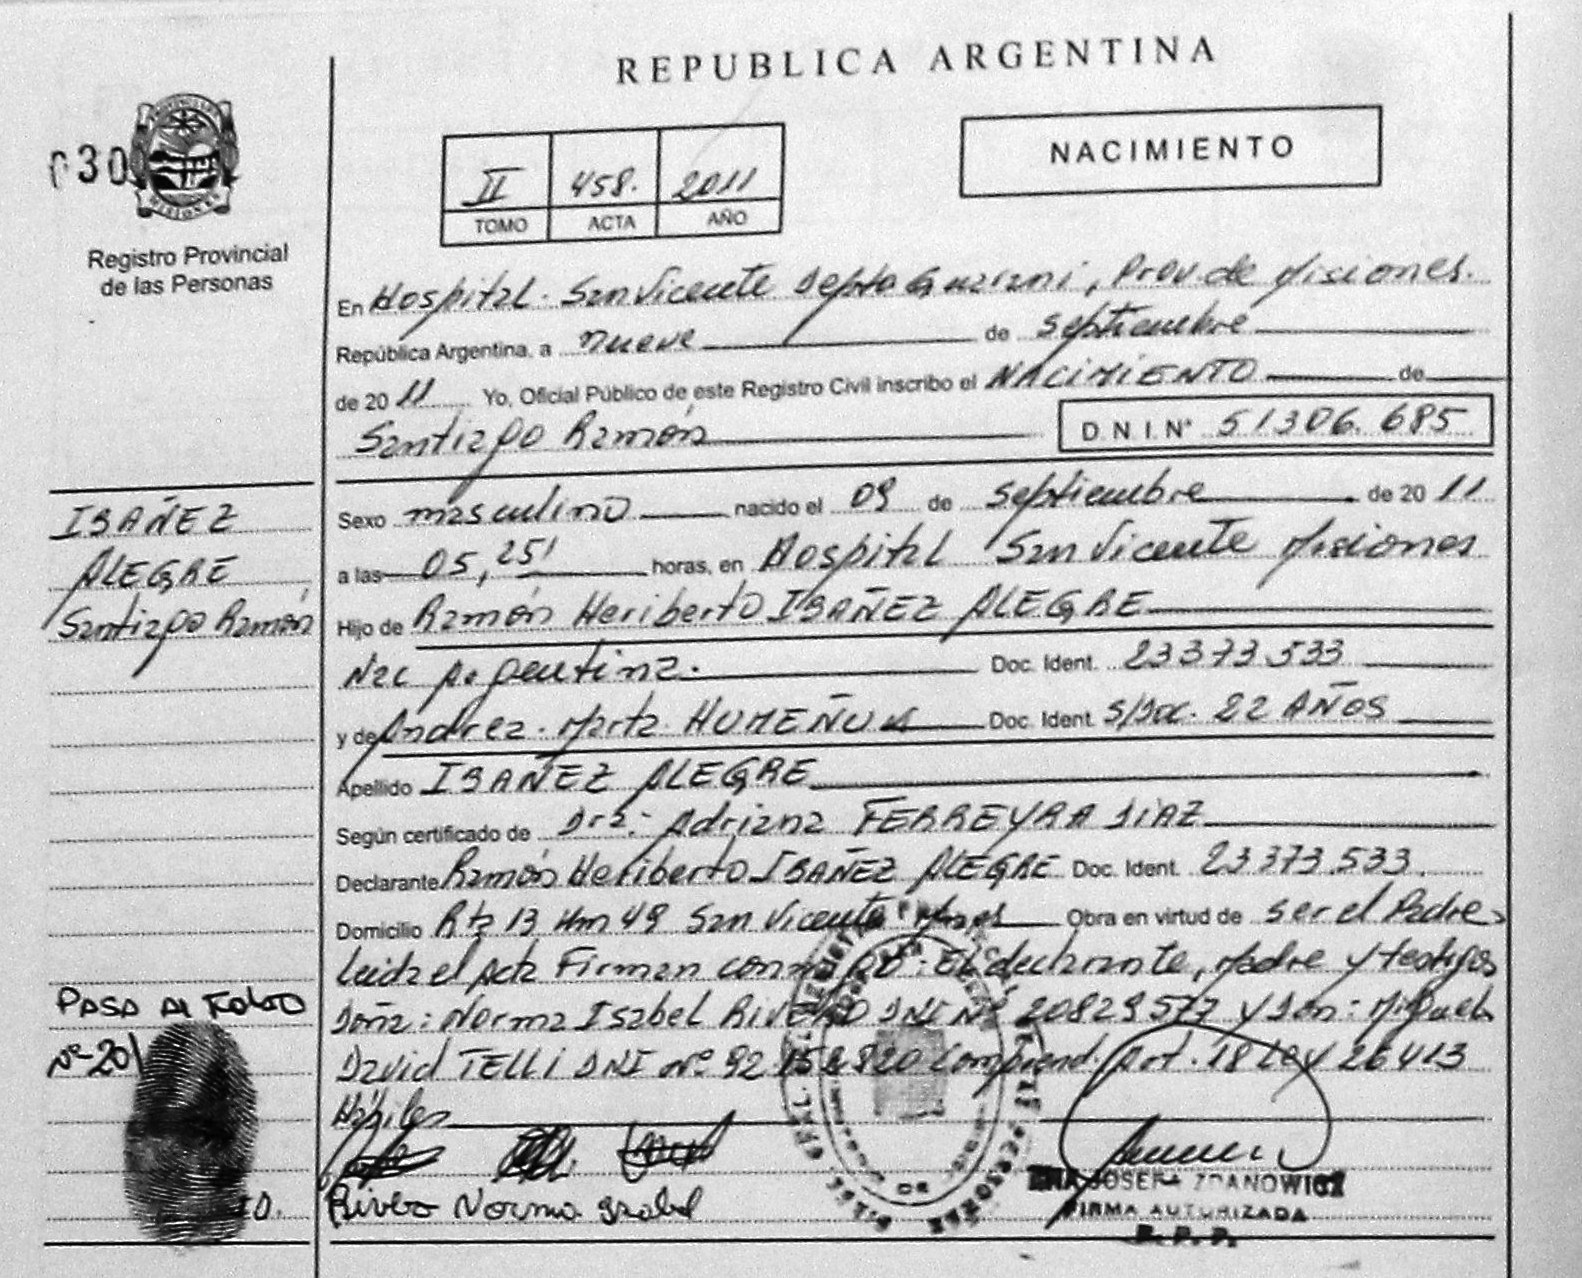 REPUBLICA ARGENTINA
030
MISIONES
Registro Provincial
de las Personas
II 458. 2011
TOMO ACTA AÑO
NACIMIENTO
En Hospital. San Vicente Depto Guarani, Prov. de Misiones.
República Argentina, a nueve de septiembre
de 20 11 Yo, Oficial Público de este Registro Civil inscribo el NACIMIENTO de
Santiago Ramón D.N.I.Nº 51306.685
IBAÑEZ
ALEGRE
Santiago Ramón
Sexo masculino nacido el 09 de septiembre de 20 11
a las 05,25' horas, en Hospital San Vicente Misiones
Hijo de Ramón Heriberto IBAÑEZ ALEGRE
Nac Argentina. Doc. Ident. 23373.533
y de Andrea. Marta HUMEÑUK Doc. Ident. S/Doc. 22 AÑOS
Apellido IBAÑEZ ALEGRE
Según certificado de Dra: Adriana FERREYRA DIAZ
Declarante Ramón Heriberto IBAÑEZ ALEGRE Doc. Ident. 23373.533.
Domicilio Rta 13 Km 49 San Vicente Mnes Obra en virtud de ser el Padre
Leida el Acta Firman conmigo: El declarante, Madre y testigos
Doña: Norma Isabel RIVERO DNI Nº 20829577 y Don: Miguel
David TELLI DNI nº 92 820 Comprend. Art. 18 Ley 26413
Hábiles
PASA Al FOLIO
Nº-201
Rivero Norma Isabel
JOSEFA ZDANOWICZ
FIRMA AUTORIZADA
R.P.P.